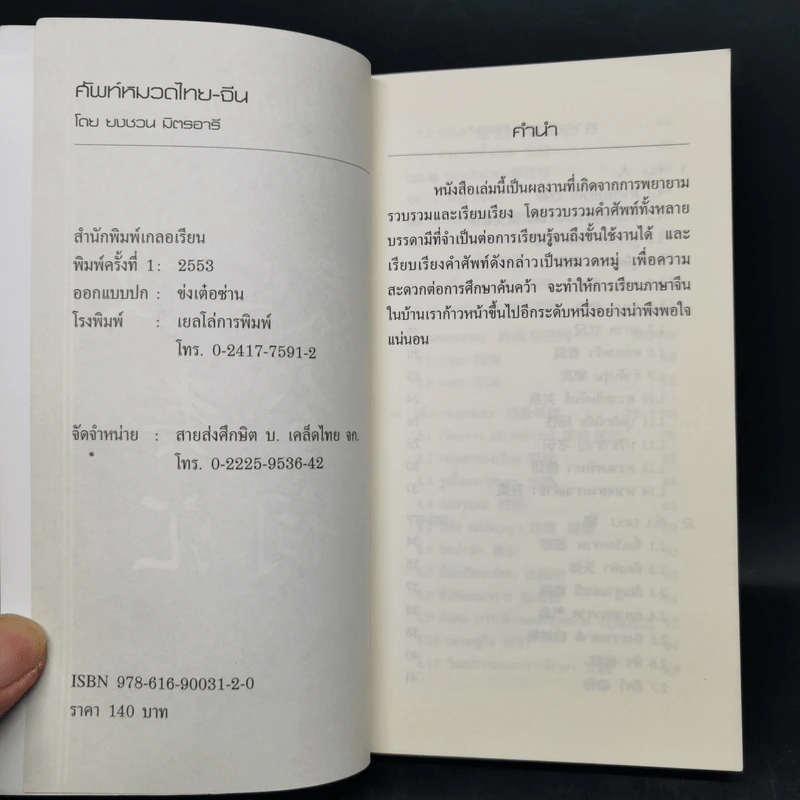 ศัพท์หมวดไทย-จีน
โดย ยงชวน มิตรอารี
สำนักพิมพ์เกลอเรียน
พิมพ์ครั้งที่ 1: 2553
ออกแบบปก : ข่งเต๋อซ่าน
โรงพิมพ์ : เยลโล่การพิมพ์
โทร. 0-2417-7591-2
จัดจำหน่าย : สายส่งศึกษิต บ. เคล็ดไทย จก.
โทร. 0-2225-9536-42
ISBN 978-616-90031-2-0
ราคา 140 บาท
คำนำ
หนังสือเล่มนี้เป็นผลงานที่เกิดจากการพยายาม
รวบรวมและเรียบเรียง โดยรวบรวมคำศัพท์ทั้งหลาย
บรรดามีที่จำเป็นต่อการเรียนรู้จนถึงขั้นใช้งานได้ และ
เรียบเรียงคำศัพท์ดังกล่าวเป็นหมวดหมู่ เพื่อความ
สะดวกต่อการศึกษาค้นคว้า จะทำให้การเรียนภาษาจีน
ในบ้านเราก้าวหน้าขึ้นไปอีกระดับหนึ่งอย่างน่าพึงพอใจ
แน่นอน